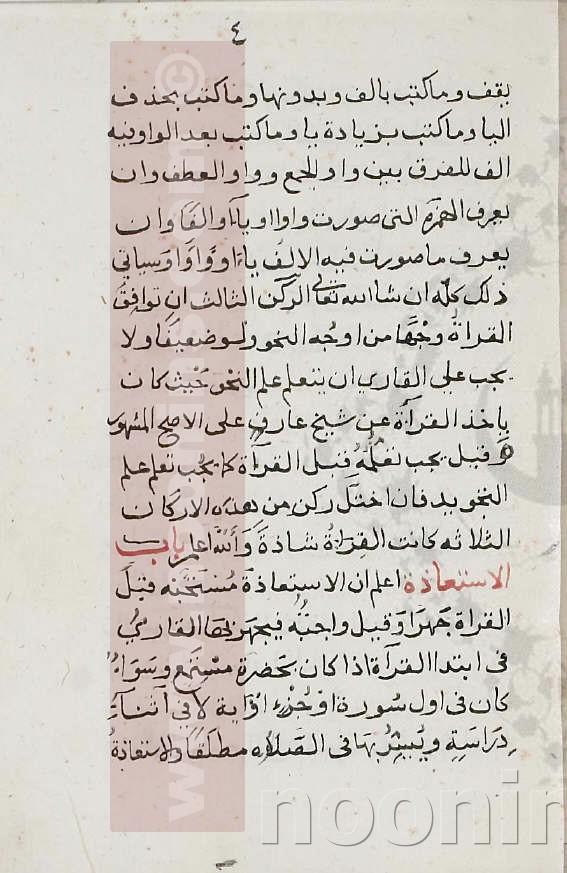 ٤
يقف وما كتب بالف وبدونها وما كتب بحذف
اليا وما كتب بزيادة يا وما كتب بعد الواو فيه
الف للفرق بين واو الجمع وواو العطف وان
يعرف الهمزة التى صورت واوا او ياًء او الفًا وان
يعرف ما صورت فيه الالف ياءً او وَاوًا وسياتي
ذلك كلّه ان شا الله تعالى الركن الثالث ان توافق
القراةُ وجْهًا من اوجُه النحو ولو ضعيفًا ولا
يجب علي القاري ان يتعلم علم النحو حَيْث كان
ياخذ القرآة عن شيخ عارفٍ على الاصح المشهور
وقيل يجب تعلّمُه قبل القرآة كما يجب تعلم علم
التجويد فان اختلّ ركن من هذه الاركان
الثلاثه كانت القراةُ شاذةً وَاللّٰه اعلم باب
الاستعاذة اعلم ان الاستعاذة مُسْتحبّه قبل
القراة جَهرًا وَقيل واجبُه فيجهر بها القارىُ
في ابتدا القرآة اذا كان بحَضرة مسْتمع وسَوَاءٌ
كان في اول سُورة اوْ جُزْءٍ اوْ آية لا في اثناءِ
دِرَاسَةٍ ويُسِرُّ بهَا في الصّلاه مطلقًا والاستعاذةُ
www.
.com
©
noonin